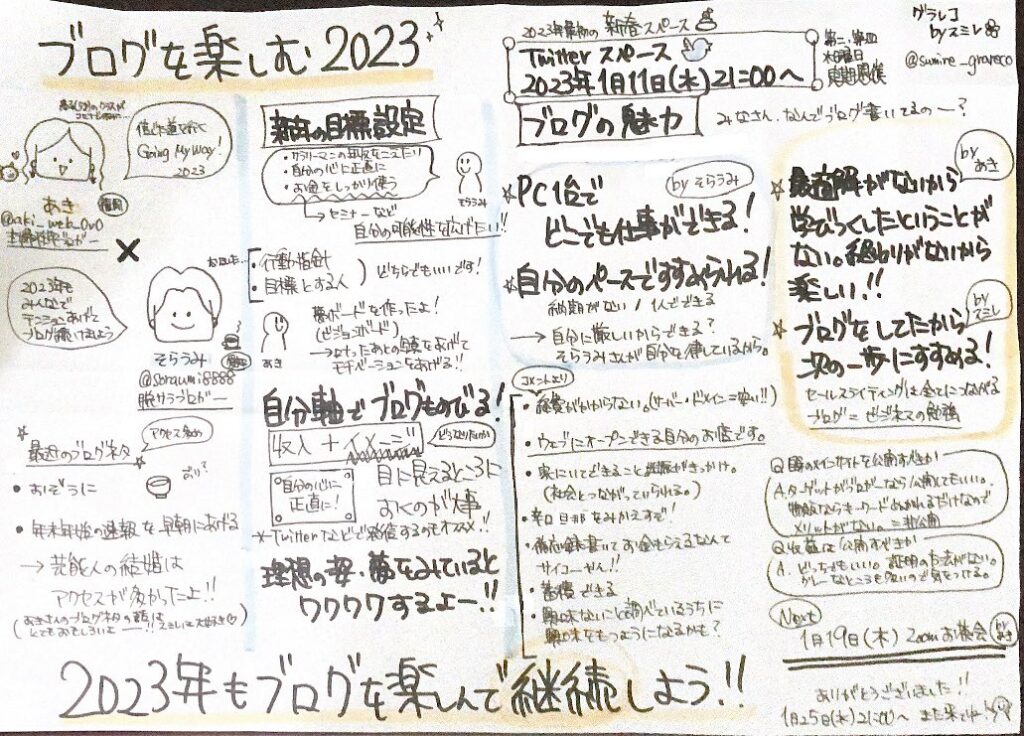 ブログを楽しむ2023
2023年最初の新春スペース
Twitterスペース
2023年1月11日(水)21:00〜
第二、第四
水曜日
定期開催
グラレコ
byスミレ
@sumire_graveco
信じた道を行く
Going My Way!
2023
あき
福岡
@aki_web_0v0
主婦雑記ブロガー
×
2023年も
みんなで
テンションあげて
ブログ書いてきましょう
そらうみ
@soraumi8888
脱サラブロガー
最近のブログネタ
アクセス多め
・おぞうに
・年末年始の速報を早朝にあげる
→芸能人の結婚は
アクセスが多かったよ!!
(あきさんのブログネタの話は
とてもおもしろいよー!!スミレは大好き♡)
新年の目標設定
・サラリーマンの年収をこえたい
・自分の心に正直に
・お金をしっかり使う
そらうみ
→セミナーなど
自分の可能性を広げたい!!
・行動指針
・目標とする人
どちらでもいいです!
夢ボードを作ったよ!
(ビジョンボード)
→なったあとの写真をあげて
モチベーションをあげる!!
あき
自分軸でブログものびる!
収入+イメージ
どうなりたいか
自分の心に
正直に!
目に見えるところに
おくのが大事
*Twitterなどで発信するのもオススメ!!
理想の姿・夢をみていると
ワクワクするよー!!
ブログの魅力
みなさん、なんでブログ書いてるのー?
by そらうみ
☆PC1台で
どこでも仕事ができる!
☆自分のペースですすめられる!
納期がない/1人でできる
→自分に厳しいからできる?
そらうみさんが自分を律しているから。
コメントより
・経費がかからない。(サーバー・ドメイン=安い!!)
・ウェブにオープンできる自分のお店です。
・家にいてできること
がきっかけ。
(社会とつながっていられる。)
・辛口旦那をみかえすぞ!
・備忘録書いてお金もらえるなんて
サイコーやん!!
・蓄積できる
・興味ないこと調べているうちに
興味をもつようになるかも?
by あき
☆最適解がないから
学びつくしたということが
ない。終わりがないから
楽しい!!
by スミレ
☆ブログをしてたから
次の一歩にすすめる!
セールスライティングは全てにつながる
ブログ=ビジネスの勉強
Q 自分のメインサイトを公開すべきか
A.ターゲットがブロガーなら公開してもいい。
物販ならキーワードぬかれるだけなので
メリットがない。=非公開
Q 収益は公開すべきか
A.どっちでもいい。証明の方法がない。
グレーなところも多いので気をつける。
Next
1月19日(木) Zoomお茶会 by あき
2023年もブログを楽しんで継続しよう!!
ありがとうございました!!
1月25日(水)21:00〜 また来てね!